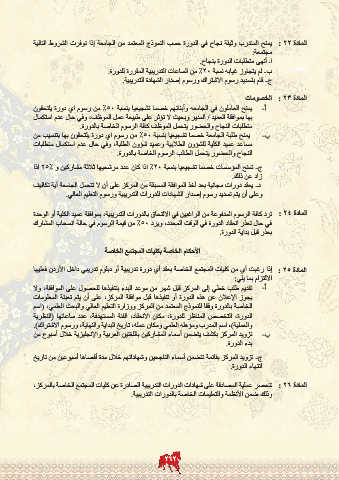 المادة ٢٢ : يمنح المتدرب وثيقة نجاح في الدورة حسب النموذج المعتمد من الجامعة إذا توفرت الشروط التالية
مجتمعة:
أ. أنهى متطلبات الدورة بنجاح.
ب. لم يتجاوز غيابه نسبة ٢٠٪ من الساعات التدريبية المقررة للدورة.
ج. قام بتسديد رسوم الاشتراك ورسوم إصدار الشهادة التدريبية.
المادة ٢٣ : الخصومات
أ- يمنح العاملون في الجامعة وأبنائهم خصما تشجيعيا بنسبة ٥٠٪ من رسوم أي دورة يلتحقون
بها بموافقة العميد / المدير وبحيث لا تؤثر على طبيعة عمل الموظف، وفي حال عدم استكمال
متطلبات النجاح والحضور يتحمل الموظف كافة الرسوم الخاصة بالدورة.
ب- يمنح طلبة الجامعة خصما تشجيعيا بنسبة ٥٠٪ من رسوم أي دورة يلتحقون بها بتنسيب من
مساعد عميد الكلية للشؤون الطلابية وعميد شؤون الطلبة، وفي حال عدم استكمال متطلبات
النجاح والحضور يتحمل الطالب الرسوم الخاصة بالدورة.
ج. تمنح المؤسسات خصما تشجيعيا بنسبة ٢٠٪ إذا كان عدد مرشحيها ثلاثة مشاركين و ٢٥٪ إذا
زاد عن ذلك.
د. يعقد دورات مجانية بعد أخذ الموافقة المسبقة من المركز على أن لا تتحمل الجامعة أية تكاليف
وعلى أن يتم تسديد رسوم إصدار الشهادات للدورات التدريبية ورسوم التعليم العالي.
المادة ٢٤ : ترد كافة الرسوم المدفوعة من الراغبين في الالتحاق بالدورات التدريبية، بموافقة عميد الكلية أو الوحدة
في حال تعذر انعقاد الدورة في الوقت المحدد، ويرد ٥٠٪ من قيمة الرسوم في حالة انسحاب المشارك
بعذر قبل بداية الدورة.
الأحكام الخاصة بكليات المجتمع الخاصة
المادة ٢٥ : إذا رغبت أي من كليات المجتمع الخاصة بعقد أي دورة تدريبية أو دبلوم تدريبي داخل الأردن فعليها
الالتزام بما يلي:
أ- تقديم طلب خطي إلى المركز قبل شهر من موعد البدء بتنفيذها للحصول على الموافقة، ولا
يجوز الإعلان عن هذه الدورة أو تنفيذها قبل موافقة المركز، على أن يتم تعبئة المعلومات
الخاصة بالدورة وفقا للنموذج المعتمد من المركز ووزارة التعليم العالي والبحث العلمي، (اسم
الدورة، التخصص المناظر للدورة، مكان الانعقاد، الفئة المستهدفة، عدد ساعاتها (النظرية
والعملية)، اسم المدرب ومؤهله العلمي ومكان عمله، تاريخ البداية والنهاية، ورسوم الاشتراك).
ب- تزويد المركز بكشف يتضمن أسماء المشاركين باللغتين العربية والإنجليزية خلال أسبوع من
بدء الدورة.
ج. تزويد المركز بقائمة تتضمن أسماء الناجحين وشهاداتهم خلال مدة أقصاها أسبوعين من تاريخ
انتهاء الدورة.
المادة ٢٦ : تنحصر عملية المصادقة على شهادات الدورات التدريبية الصادرة عن كليات المجتمع الخاصة بالمركز،
وذلك ضمن الأنظمة والتعليمات الخاصة بالدورات التدريبية.